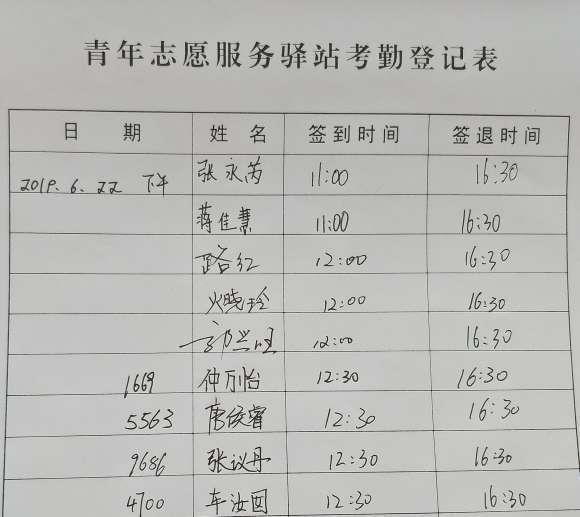 青年志愿服务驿站考勤登记表
日 期 姓 名 签到时间 签退时间
2019.6.22 下午 张永芮 11:00 16:30
蒋佳慧 11:00 16:30
路红 12:00 16:30
火晓玲 12:00 16:30
郭兰旺 12:00 16:30
1669 仲万怡 12:30 16:30
5563 唐俊睿 12:30 16:30
9686 张议丹 12:30 16:30
4700 车汝囡 12:30 16:30